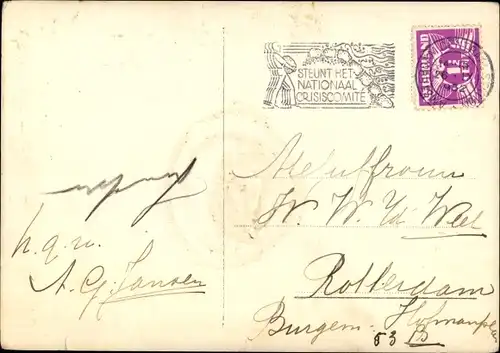 STEUNT HET
NATIONAAL
CRISISCOMITE
NEDERLAND
1½
Mejuffrouw
W. W. v.d. Wel
Rotterdam
Burgem. Hofmanplein
53 B
h.q.w.
A. G. Jansen